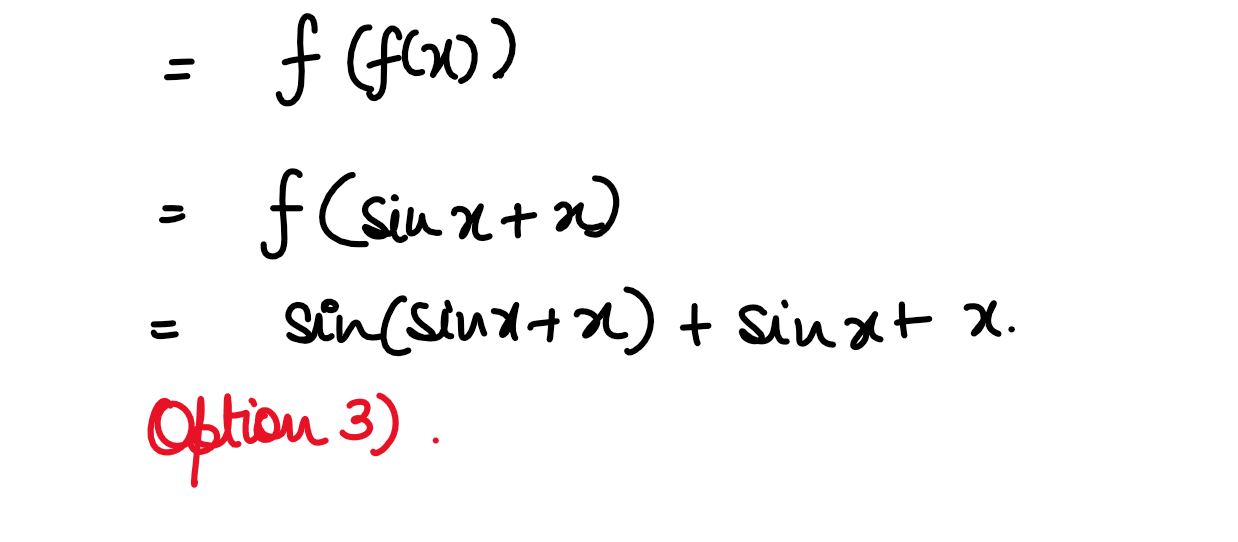 = f(f(x))
= f(sin x + x)
= sin(sin x + x) + sin x + x.
Option 3) .